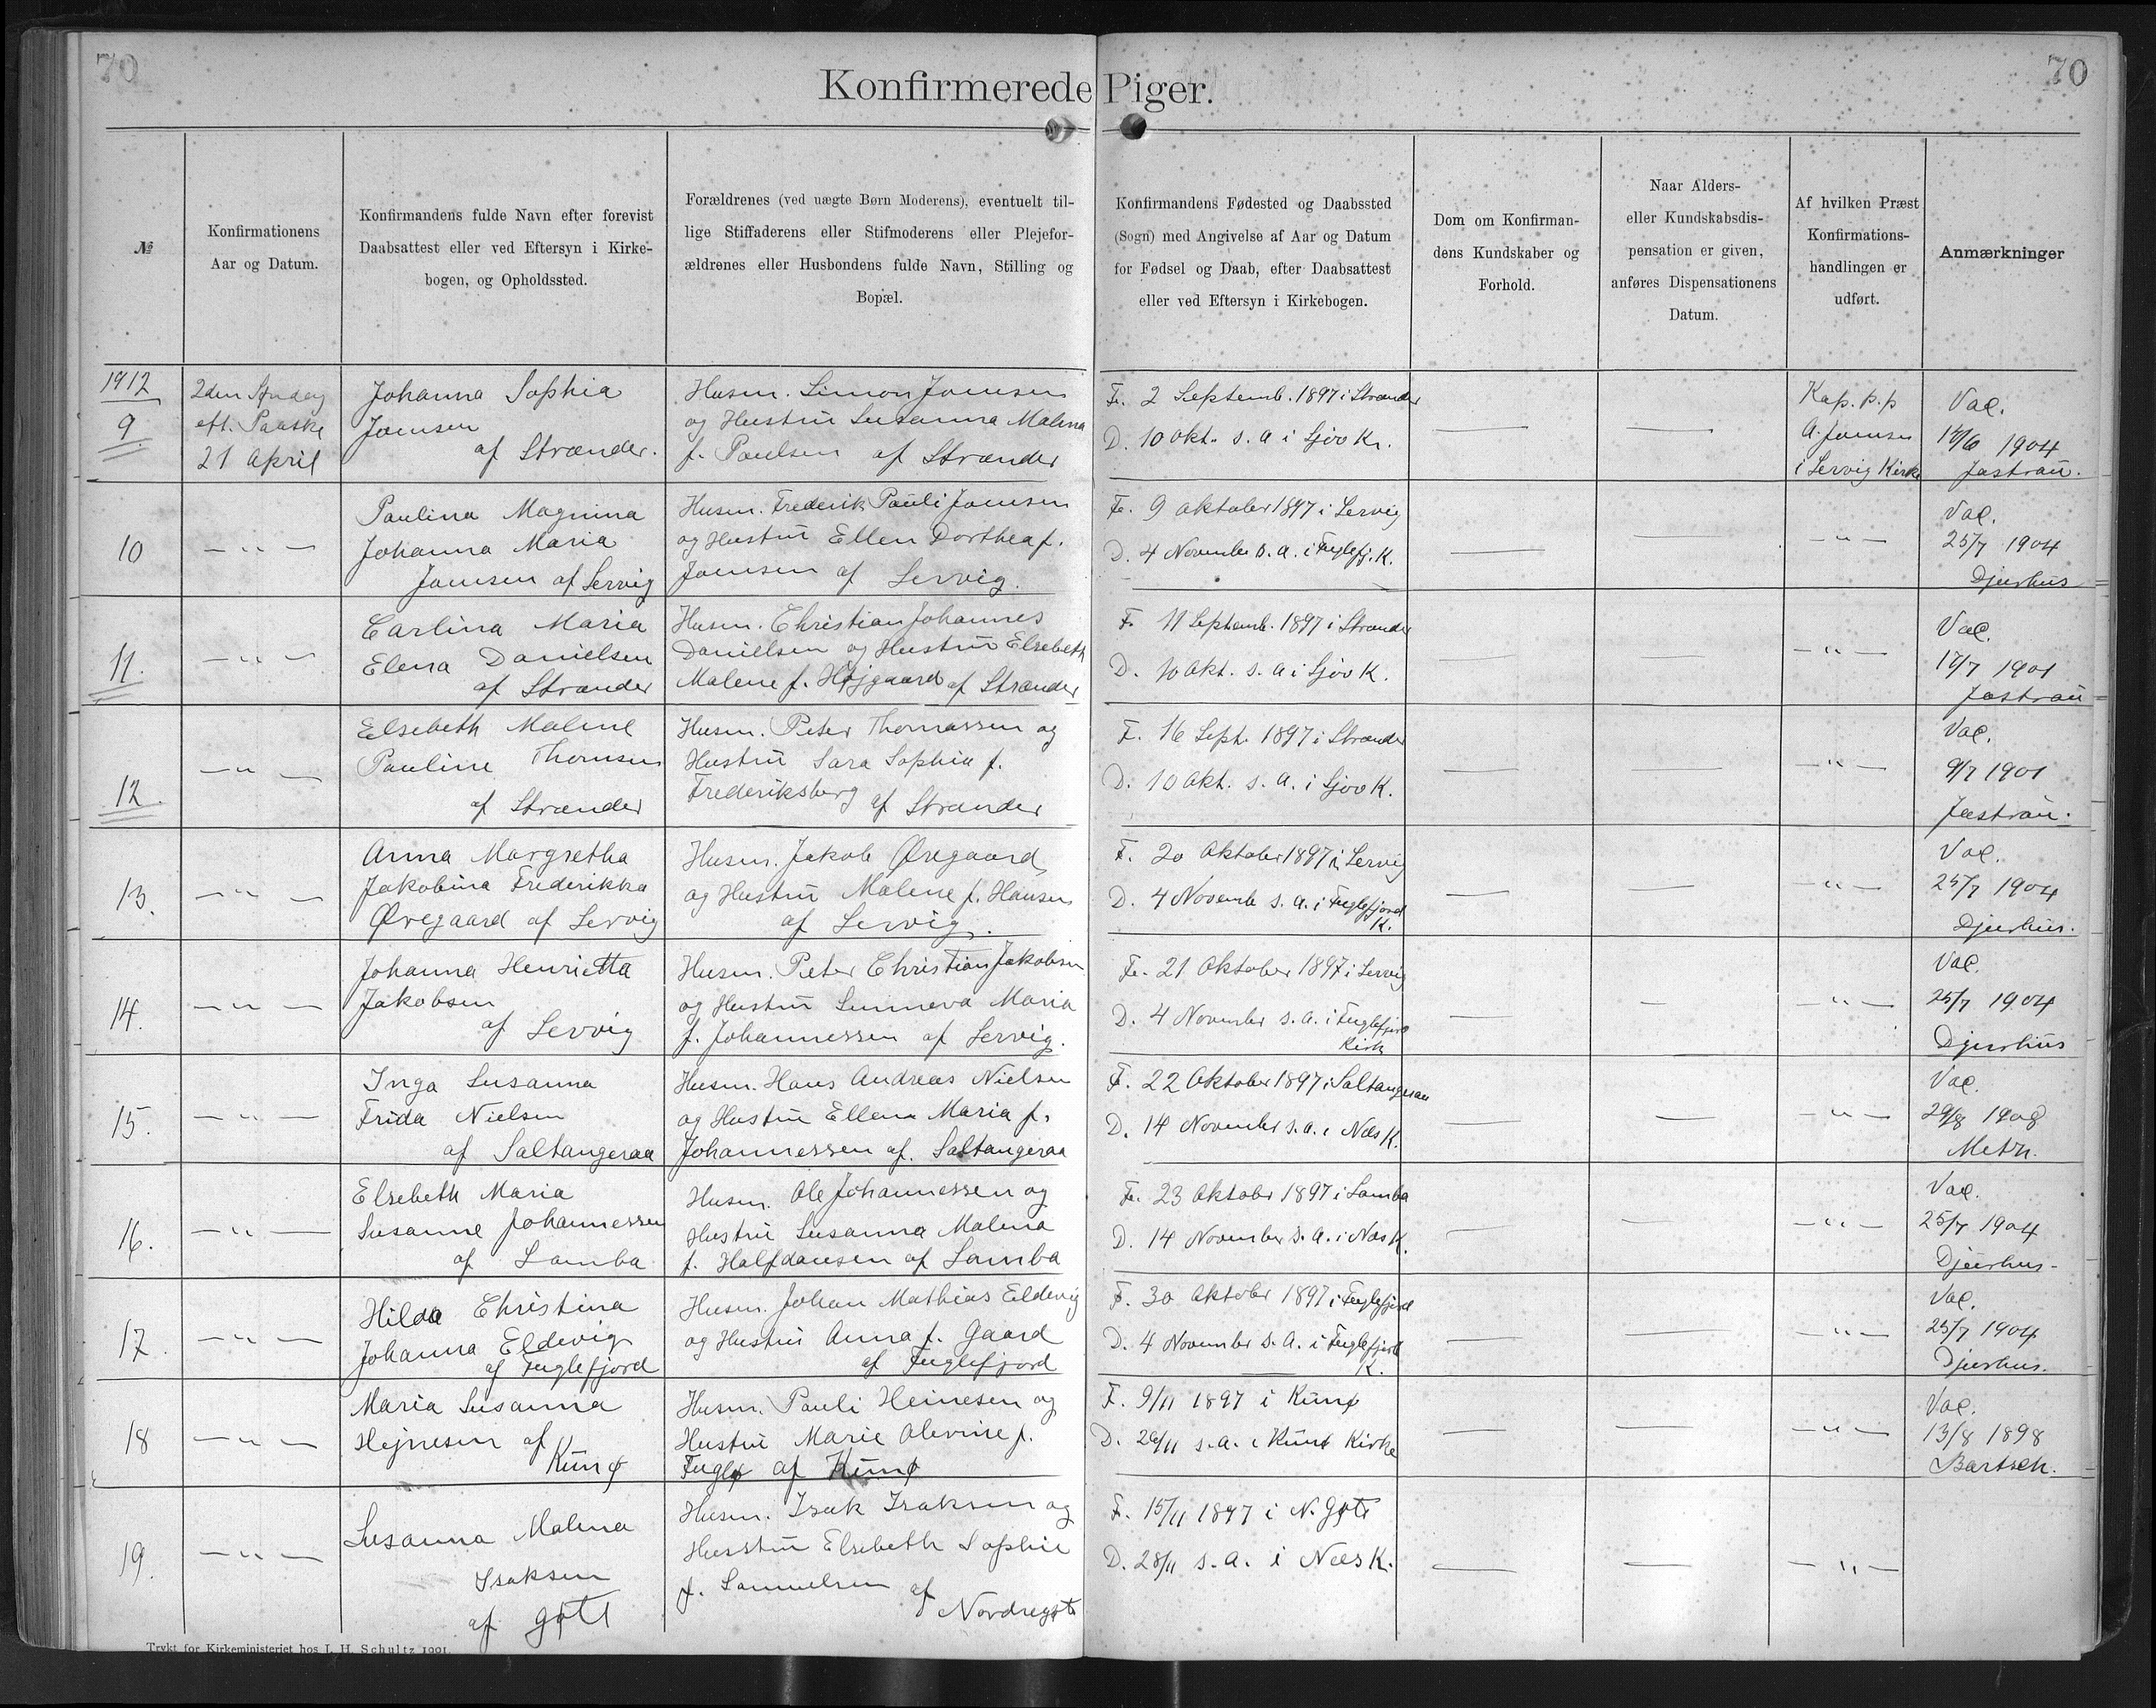 70
Konfirmerede Piger.
70
№
Konfirmationens
Aar og Datum.
Konfirmandens fulde Navn efter forevist
Daabsattest eller ved Eftersyn i Kirke-
bogen, og Opholdssted.
Forældrenes (ved uægte Børn Moderens), eventuelt til-
lige Stiffaderens eller Stifmoderens eller Plejefor-
ældrenes eller Husbondens fulde Navn, Stilling og
Bopæl.
Konfirmandens Fødested og Daabssted
(Sogn) med Angivelse af Aar og Datum
for Fødsel og Daab, efter Daabsattest
eller ved Eftersyn i Kirkebogen.
Dom om Konfirman-
dens Kundskaber og
Forhold.
Naar Alders-
eller Kundskabsdis-
pensation er given,
anføres Dispensationens
Datum.
Af hvilken Præst
Konfirmations-
handlingen er
udført.
Anmærkninger
1912
9
2den Søndag
eft. Paaske
21 April
Johanna Sophia
Joensen
af Strænder.
Husm. Simon Joensen
og Hustrü Susanna Malena
f. Paulsen af Strænder
F. 2 Septemb. 1897 i Strænder
D. 10 okt. s. a i Sjov K.
Kap. p. p
A. Joensen
i Lervig Kirke
Vac.
1904
Jastrau.
10
— " —
Paulina Magnina
Johanna Maria
Joensen af Lervig
Husm. Frederik Pauli Joensen
og Hustrü Ellen Dorthea f.
Joensen af Lervig.
F. 9 oktober 1897 i Lervig
D. 4 November s. a. i Fuglefj. K.
— " —
Vac.
25/7 1904
Djurhus
11.
— " —
Carlina Maria
Elena Danielsen
af Strænder
Husm. Christian Johannes
Danielsen og Hustrü Elsebeth
Malene f. Højgaard af Strænder
F. 11 Septemb. 1897 i Strænder
D. 10 okt. s. a i Sjov K.
— " —
Vac.
17/7 1901
Jastrau
12.
— " —
Elsebeth Malene
Pauline Thomsen
af Strænder
Husm. Peter Thomassen og
Hustrü Sara Sophia f.
Frederiksberg af Strænder
F. 16 Sept. 1897 i Strænder
D. 10 okt. s. a. i Sjov K.
— " —
Vac.
9/7 1901
Jastrau.
13.
— " —
Anna Margretha
Jakobina Frederikka
Øregaard af Lervig
Husm. Jakob Øregaard
og Hustrü Malene f. Hansen
af Lervig.
F. 20 Oktober 1897 i Lervig
D. 4 Novemb s. a. i Fuglefjord
K.
— " —
Vac.
25/7 1904
Djurhus.
14.
— " —
Johanna Henrietta
Jakobsen
af Lervig
Husm. Peter Christian Jakobsen
og Hustrü Sunneva Maria
f. Johannessen af Lervig.
F. 21 Oktober 1897 i Lervig
D. 4 November s. a. i Fuglefjord
Kirk
— " —
Vac.
25/7 1904
Djurhus
15.
— " —
Inga Susanna
Frida Nielsen
af Saltangeraa
Husm. Hans Andreas Nielsen
og Hustrü Ellena Maria f.
Johannessen af. Saltangeraa
F. 22 Oktober 1897 i Saltangeraa
D. 14 November s. a. i Næs K.
— " —
Vac.
29/8 1908
16.
— " —
Elsebeth Maria
Susanne Johannessen
af Lamba
Husm. Ole Johannessen og
Hustrü Susanna Malena
f. Halfdansen af Lamba
F. 23 Oktober 1897 i Lamba
D. 14 November s. a. i Næs K.
— " —
Vac.
25/7 1904
Djurhus-
17.
— " —
Hilda Christina
Johanna Eldevig
af Fuglefjord
Husm. Johan Mathias Eldevig
og Hustrü Anna f. Gaard
af Fuglefjord
F. 30 Oktober 1897 i Fuglefjord
D. 4 November s. a. i Fuglefjord
K.
— " —
Vac.
25/7 1904
Djurhus.
18
— " —
Maria Susanna
Hejnesen af
Kunø
Husm. Pauli Heinesen og
Hustrü Marie Olevine f.
Fuglø af Kunø
F. 9/11 1897 i Kunø
D. 26/11 s. a. i Kunø Kirke
— " —
Vac.
13/8 1898
Bartsch.
19.
— " —
Susanna Malena
Isaksen
af Gøte
Husm. Isak Isaksen og
Husstrü Elsebeth Sophie
f. Samuelsen af
Nordregøte
F. 15/11 1897 i N. Gøte
D. 28/11 s. a. i Næs K.
— " —
Trykt for Kirkeministeriet hos J. H. Schultz 1901.